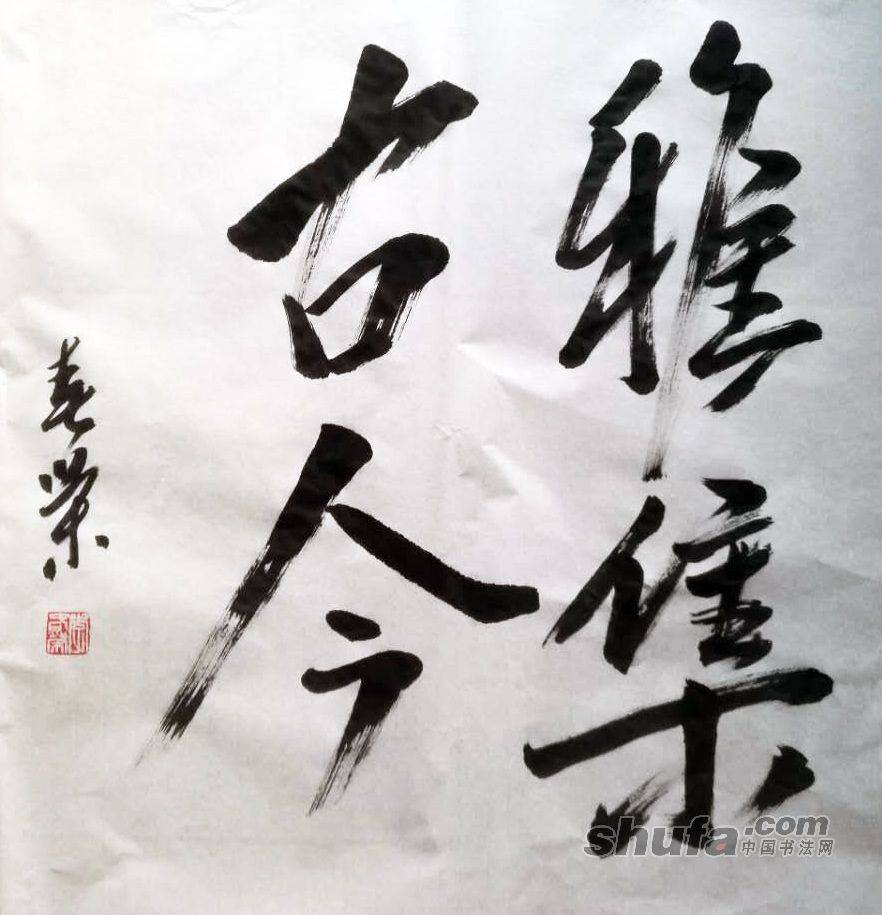 雅集
古今
春荣
shufa.com
中国书法网